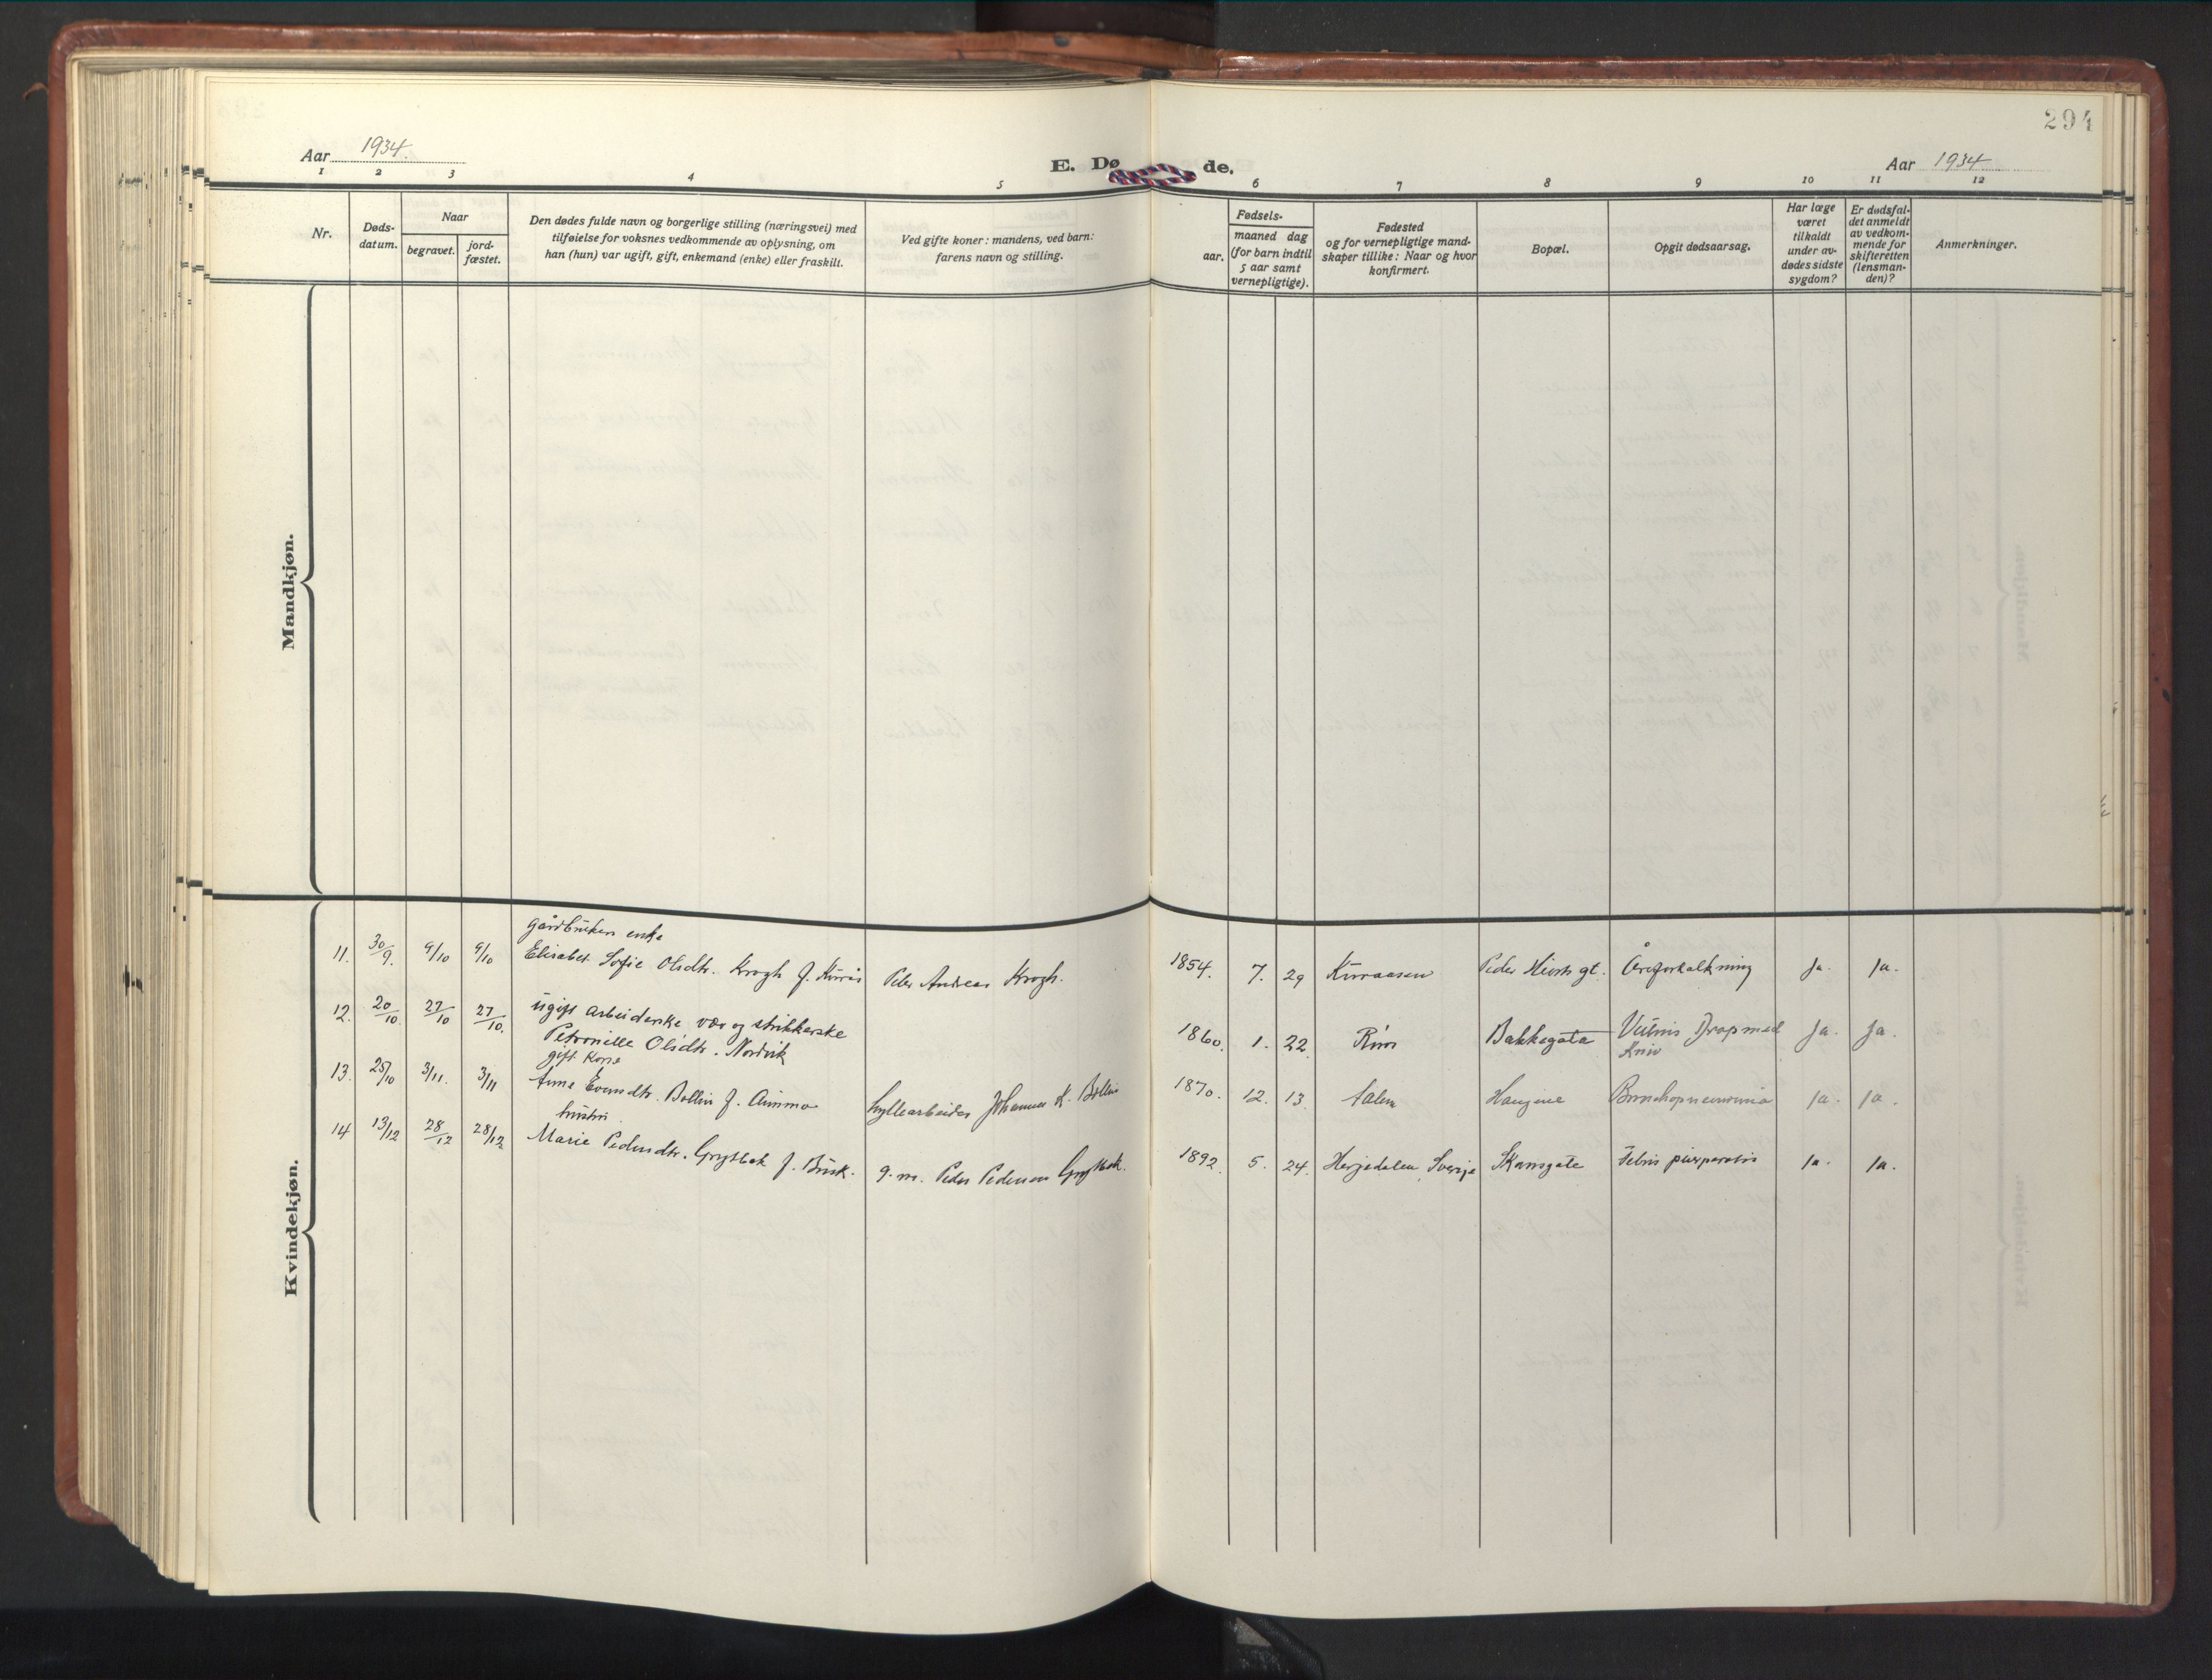 294
Aar 1934.
E. Dø de.
Aar 1934
1 2 3 4 5 6 7 8 9 10 11 12
Nr.
Døds-
datum.
Naar
begravet.
jord-
fæstet.
Den dødes fulde navn og borgerlige stilling (næringsvei) med
tilføielse for voksnes vedkommende av oplysning, om
han (hun) var ugift, gift, enkemand (enke) eller fraskilt.
Ved gifte koner: mandens, ved barn:
farens navn og stilling.
Fødsels-
aar.
maaned dag
(for barn indtil
5 aar samt
vernepligtige).
Fødested
og for vernepligtige mand-
skaper tillike: Naar og hvor
konfirmert.
Bopæl.
Opgit dødsaarsag.
Har læge
været
tilkaldt
under av-
dødes sidste
sygdom?
Er dødsfal-
det anmeldt
av vedkom-
mende for
skifteretten
(lensman-
den)?
Anmerkninger.
Mandkjøn.
Kvindekjøn.
gårdbruker enke
11. 30/9. 9/10 9/10 Elisabet Sofie Olsdtr. Krogh f. Kurås Peder Andreas Krogh. 1854. 7. 29 Kuraasen Peder Hiorts gt. Åreforkalkning Ja. Ja.
ugift arbeiderske vev og strikkerske
12. 20/10 27/10 27/10. Petronille Olsdtr. Nordvik 1860. 1. 22. Røros Bakkegata Vulnus Drap med Kniv Ja. Ja.
gift Kone
13. 25/10 3/11. 3/11 Anne Evensdtr. Bollin f. Aunmo hyttearbeider Johannes K. Bollin 1870. 12. 13. Aalen Haugene Bronchopneumonia Ja. Ja.
hustru
14 13/12 28/12 28/12 Marie Pedersdtr. Grytbak f. Busk. g. m. Peder Pedersen Grytbak. 1892. 5. 24. Herjedalen, Sverige Skansgate Febris puerperalis Ja. Ja.